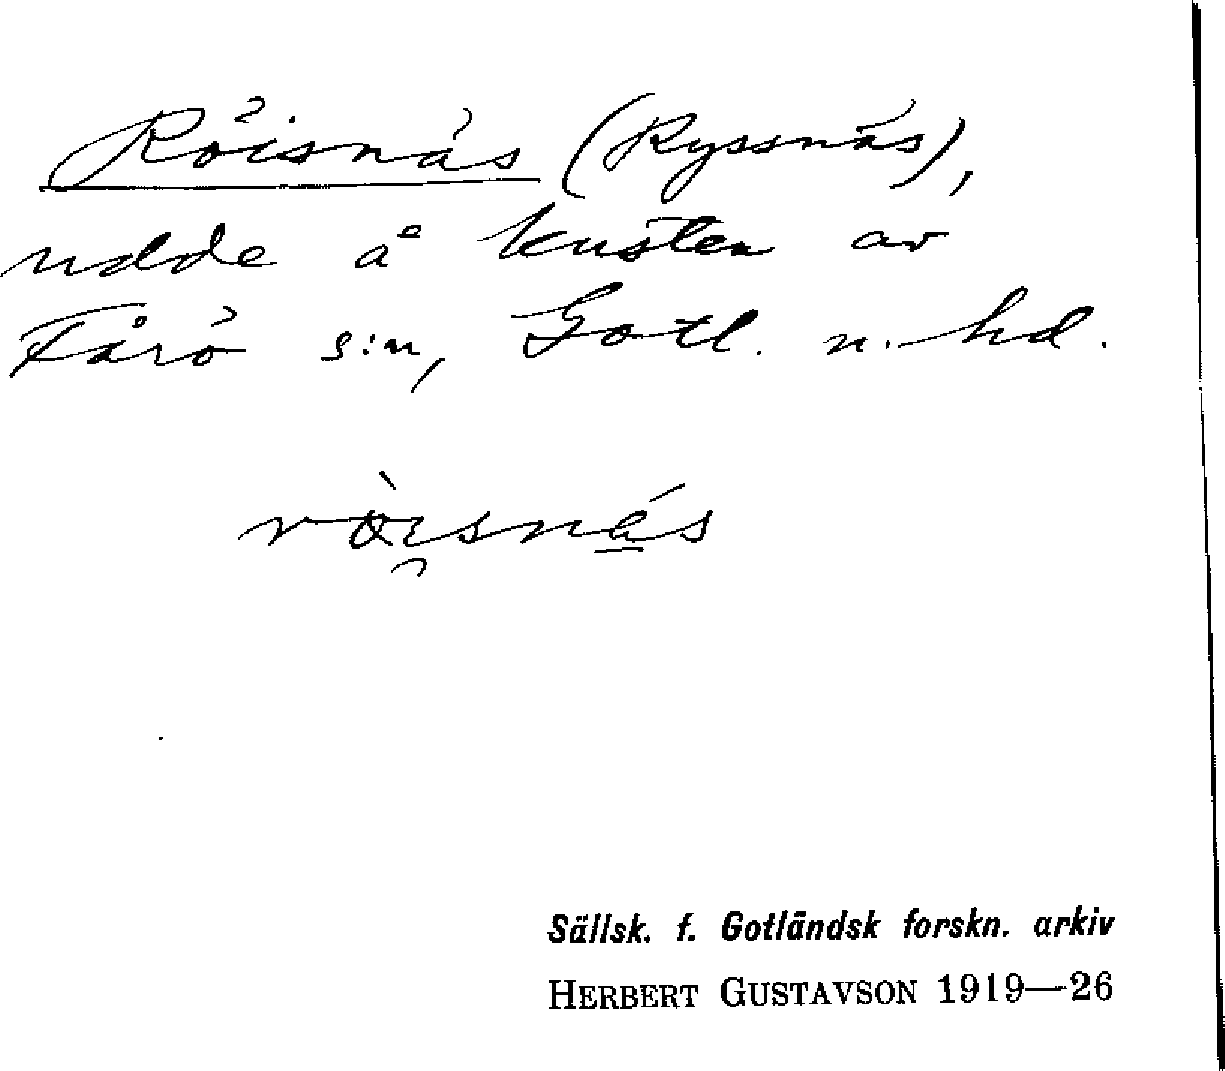 Röisnäs (Ryssnäs),
udde å kusten av
Fårö s:n, Gotl. n. hd.
Sällsk. f. Gotländsk forskn. arkiv
HERBERT GUSTAVSON 1919—26